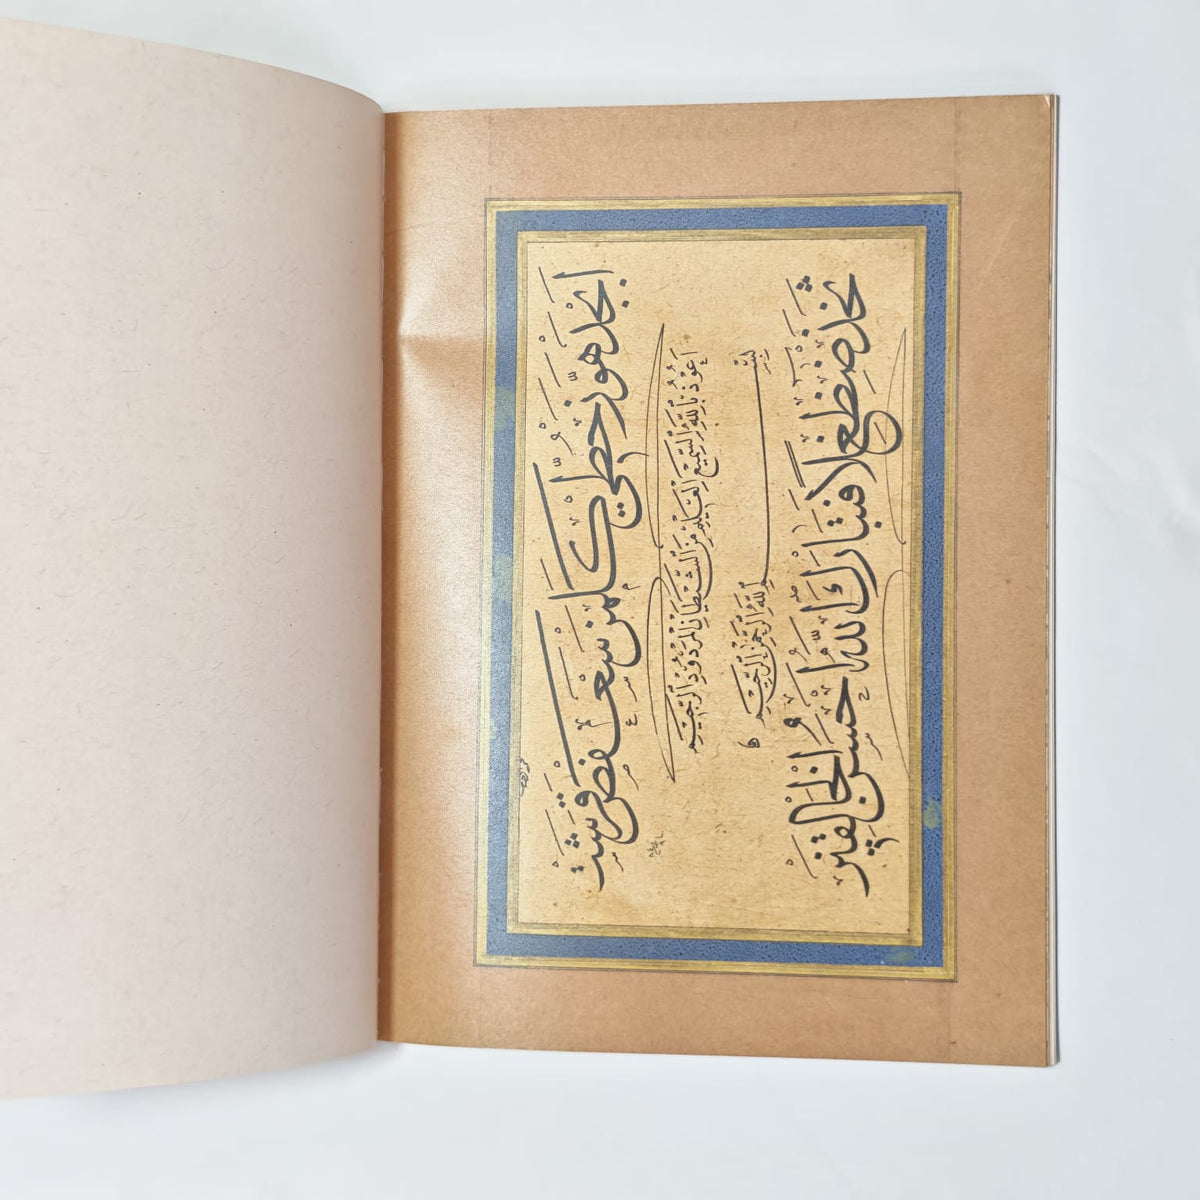 ابجد هوز حطي كلمن سعفص قرشت
اعوذ بالله السميع العليم من الشيطان المردود الرجيم
بسم الله الرحمن الرحيم
ثخذ ضظغ لا فتبارك الله احسن الخالقين